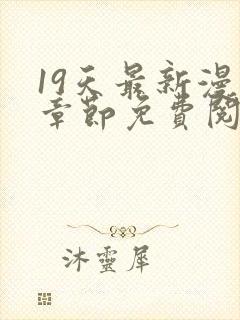 19天最新漫
章節免費閱
沐靈犀